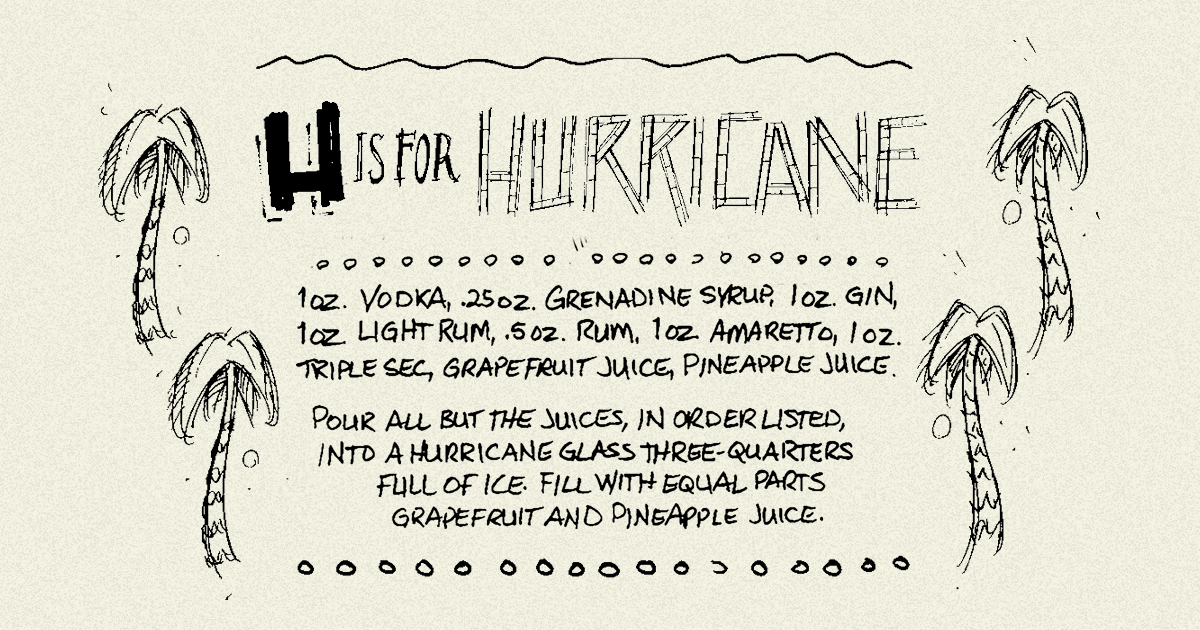 H IS FOR HURRICANE
1oz. VODKA, .25oz. GRENADINE SYRUP, 1oz. GIN,
1oz LIGHT RUM, .5oz. RUM, 1oz AMARETTO, 1oz.
TRIPLE SEC, GRAPEFRUIT JUICE, PINEAPPLE JUICE.
POUR ALL BUT THE JUICES, IN ORDER LISTED,
INTO A HURRICANE GLASS THREE-QUARTERS
FULL OF ICE. FILL WITH EQUAL PARTS
GRAPEFRUIT AND PINEAPPLE JUICE.